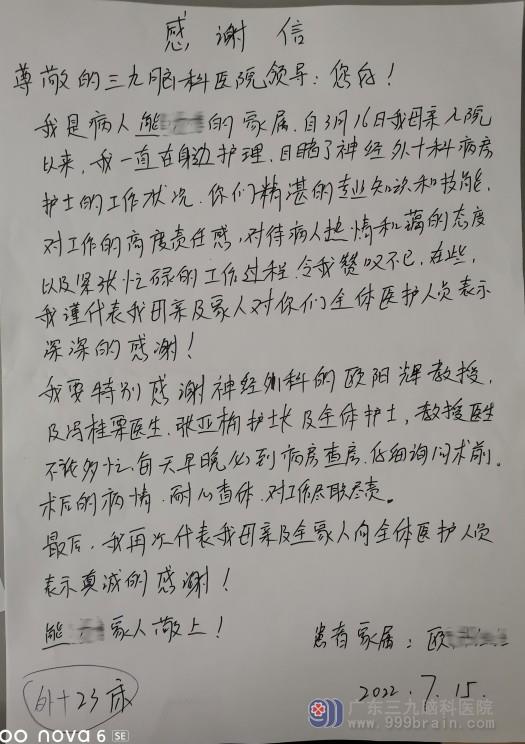 感谢信
尊敬的三九脑科医院领导：您好！
我是病人熊 的家属，自3月16日我母亲入院
以来，我一直在身边护理，目睹了神经外十科病房
护士的工作状况。你们精湛的专业知识和技能，
对工作的高度责任感，对待病人热情和蔼的态度
以及紧张忙碌的工作过程，令我赞叹不已，在些，
我谨代表我母亲及家人对你们全体医护人员表示
深深的感谢！
我要特别感谢神经外科的欧阳辉教授，
及冯桂栗医生、张亚楠护士长及全体护士，教授医生
不论多忙，每天早晚必到病房查房，仔细询问术前、
术后的病情，耐心查体，对工作尽职尽责。
最后，我再次代表我母亲及全家人向全体医护人员
表示真诚的感谢！
熊 家人敬上！
患者家属：欧
2022.7.15.
外十23床
nova 6 SE
广东三九脑科医院
www.999brain.com